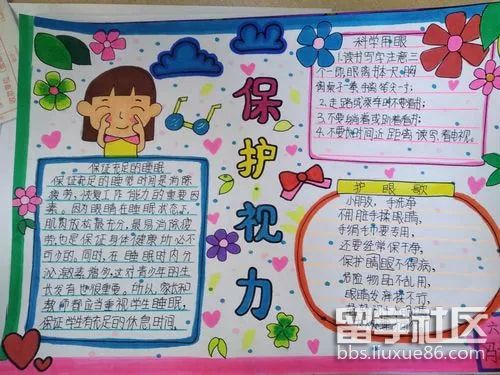 保护视力
科学用眼
1.读书写字注意三
个一,即眼离书本一尺,胸
离桌子一拳,
2.走路或乘车时不要看书;
3.不要躺着或趴着看书;
4.不要长时间近距离读写、看电视。
保证充足的睡眠
保证充足的睡觉时间是消除
疲劳,恢复工作能力的重要因
素。因为眼睛在睡眠状态下,
肌肉放松最充分,最易消除疲
劳,也是保证身体健康所必不
可分的。同时,在睡眠时内分
泌激素增多,这对青少年的生
长发育也很重要。所以,家长和
教师都应当重视学生睡眠,
保证学生有充足的休息时间。
护眼歌
小朋友,手洗净,
不用脏手揉眼睛,
手绢毛巾要专用,
还要经常保干净,
保护睛眼不得病,
危险物品不乱用,
眼睛发痒揉不行,
留学社区
bbs.liuxue86.com